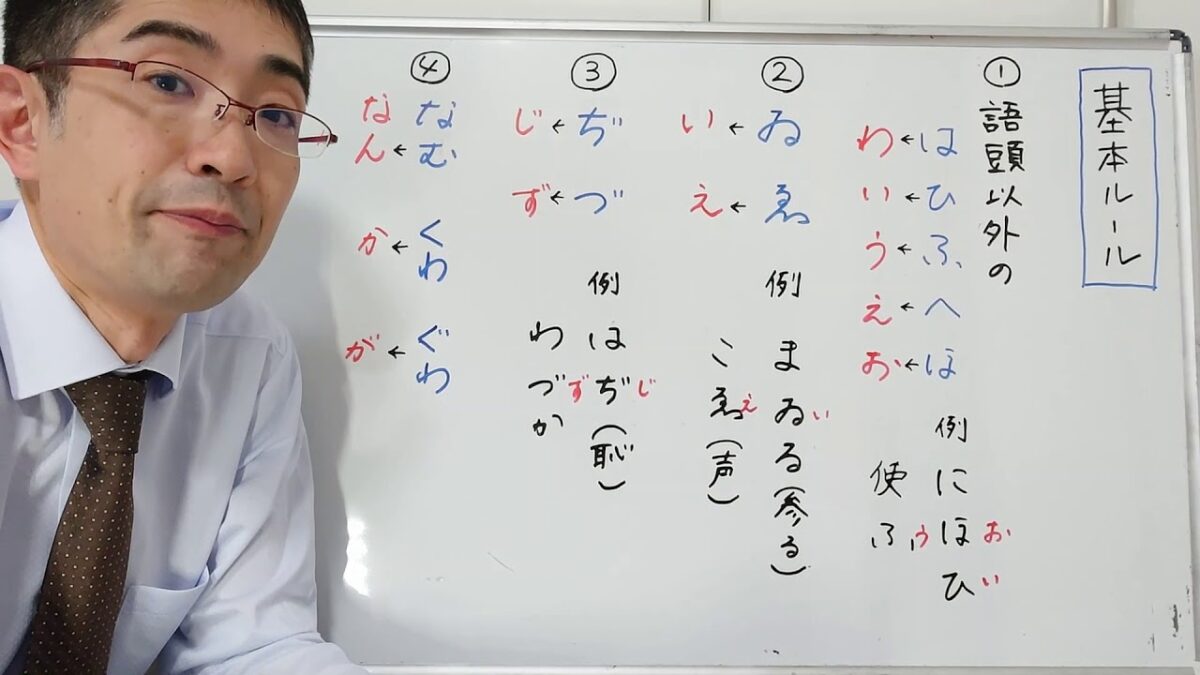 基本ルール
①
語頭以外の
わ←は
い←ひ
う←ふ
え←へ
お←ほ
例
にほひ
おい
使ふ
う
②
い←ゐ
え←ゑ
例
まゐる(参る)
い
こゑ(声)
え
③
じ←ぢ
ず←づ
例
はぢ(恥)
じ
わづか
ず
④
なん←なむ
か←くわ
が←ぐわ